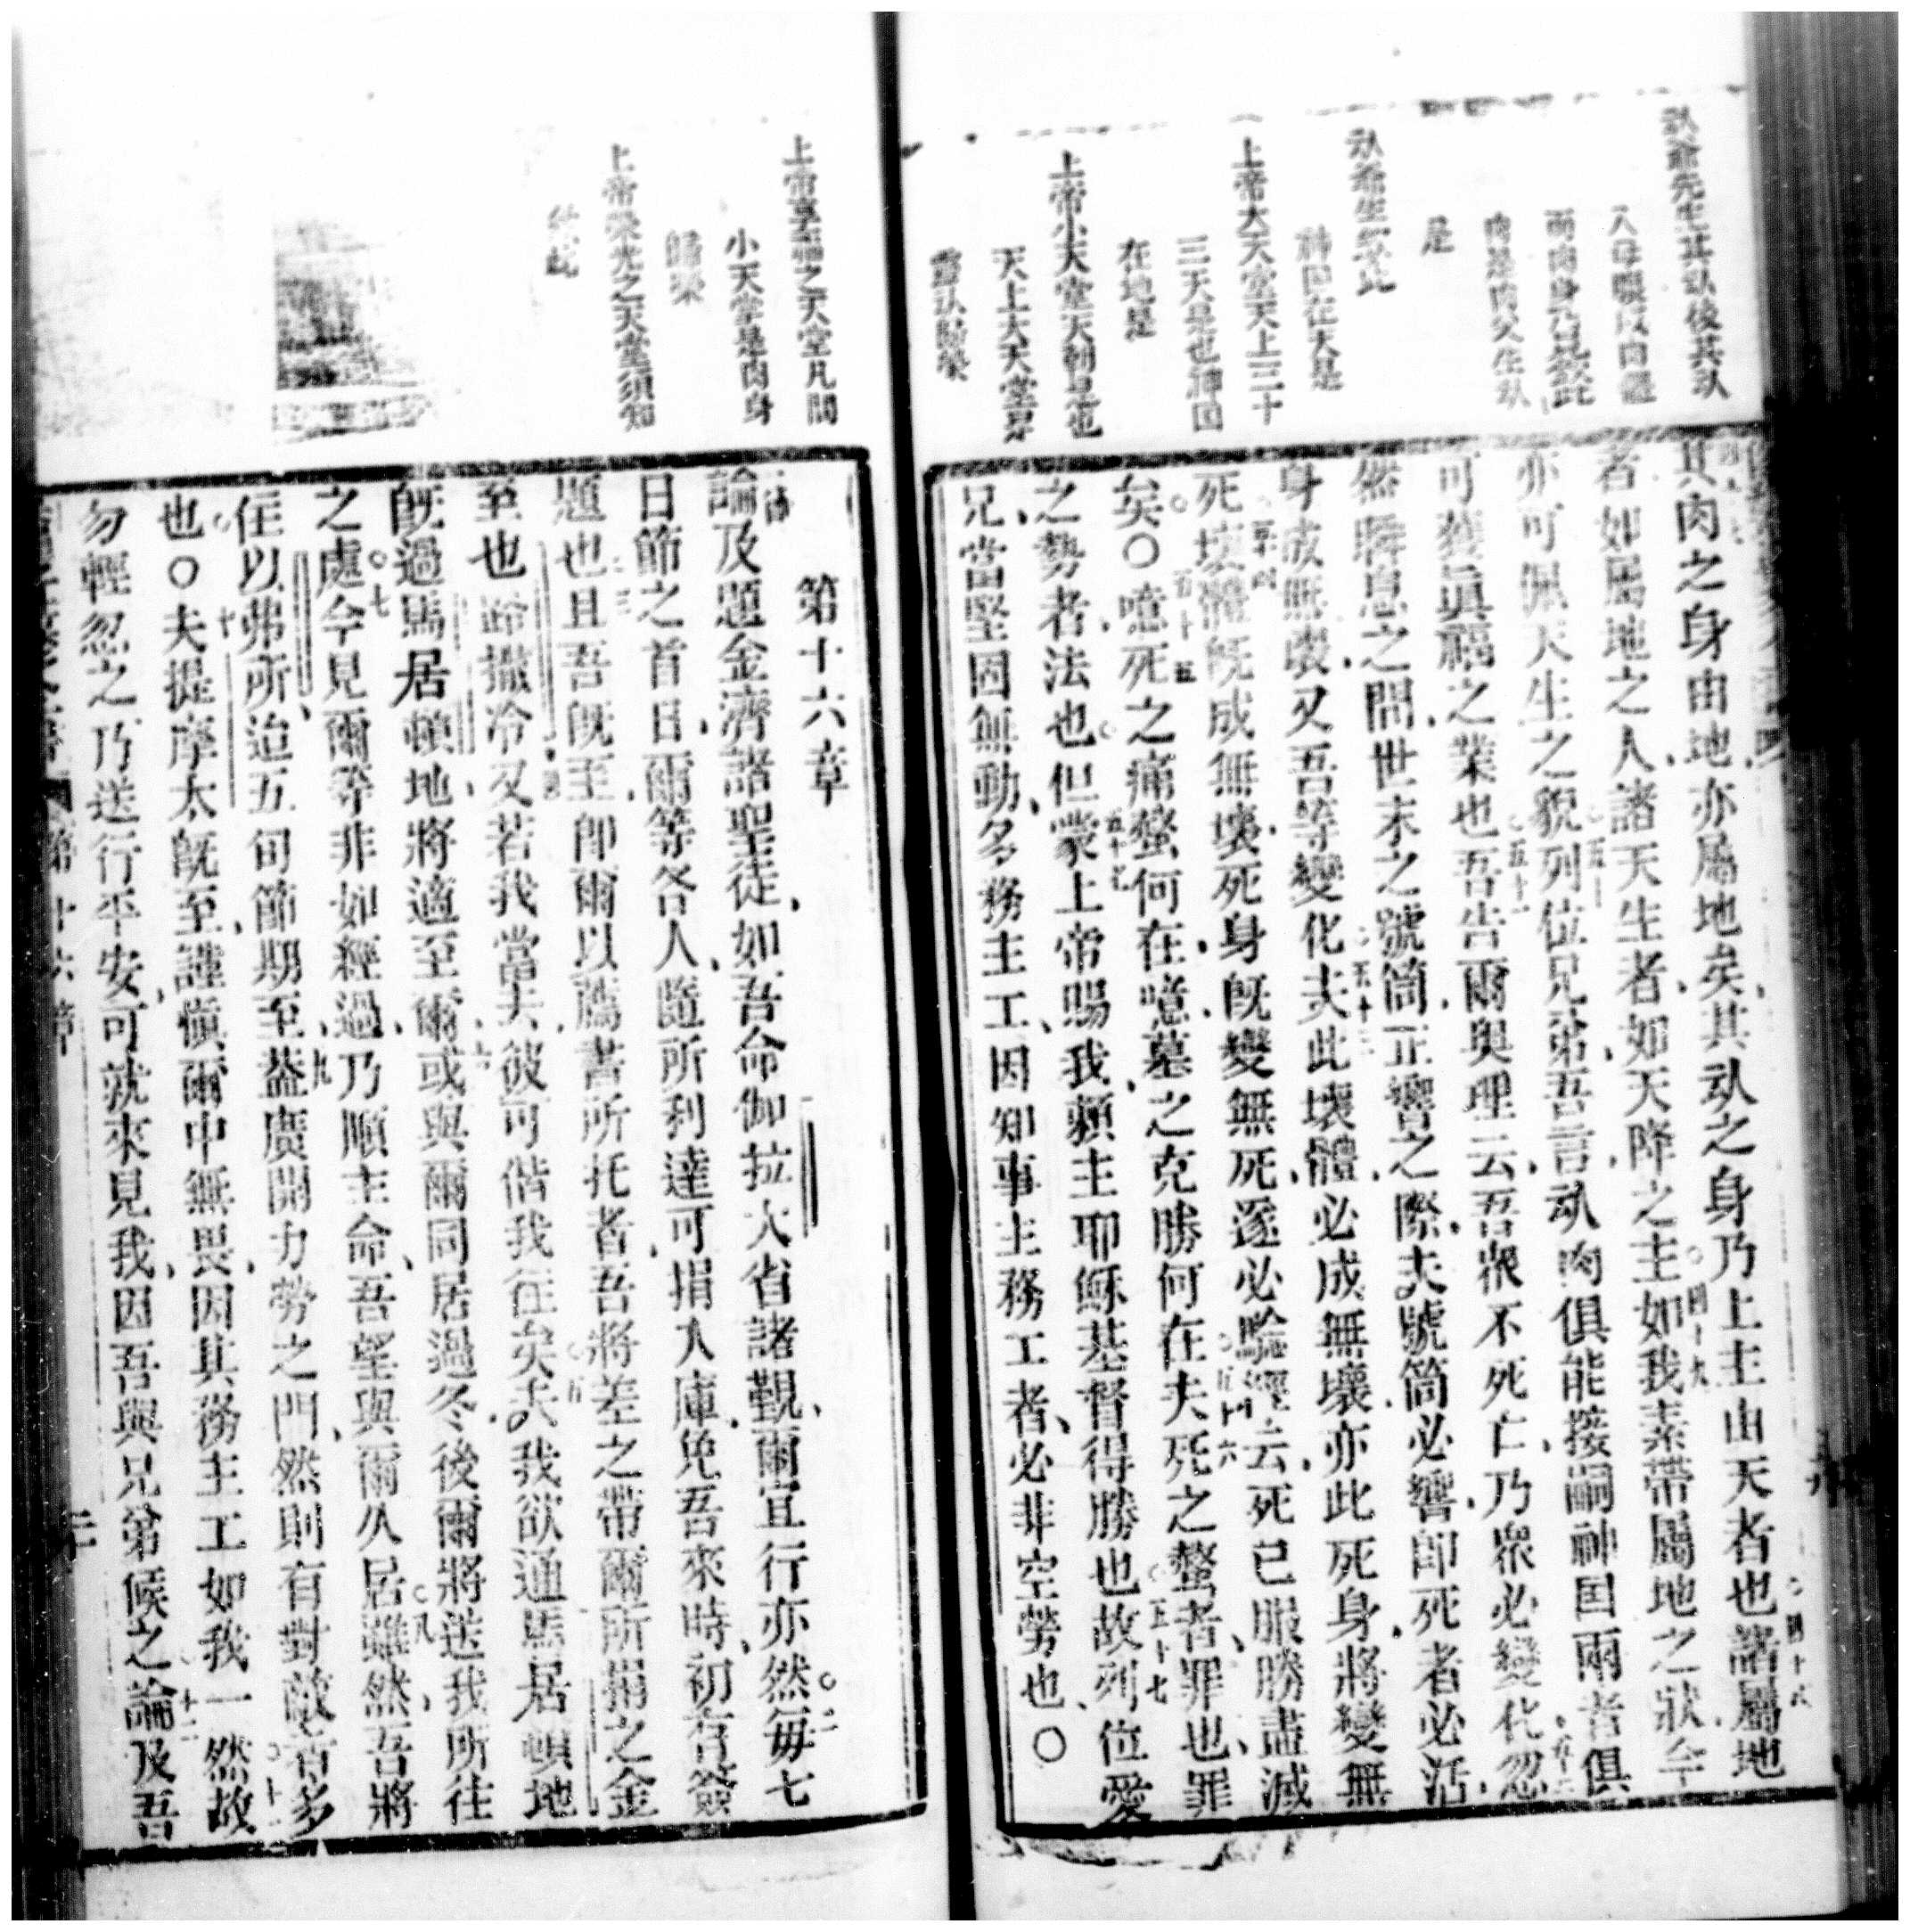 魂爺先生其魂後其魂
入母腹成肉體
而肉身乃見欽此
肉是肉父生魂
是
魂爺生欽此
神囯在天是
上帝大天堂天上三十
三天是也神囯
在地是
上帝小天堂天朝是也
天上大天堂是
靈魂歸榮
其肉之身由地亦屬地矣其魂之身乃上主由天者也諸屬地
者如屬地之人諸天生者如天降之主如我素帶屬地之狀今
亦可佩天生之貌列位兄弟吾言魂肉俱能接嗣神囯兩者俱
可獲眞福之業也吾告爾奥理云吾眾不死亡乃眾必變化忽
然瞬息之間世末之號筒正響之際夫號筒必響卽死者必活
身成無壞又吾等變化夫此壞體必成無壞亦此死身將變無
死壞體既成無壞死身既變無死遂必騐經云死已服勝盡滅
矣○噫死之痛螫何在噫墓之克勝何在夫死之螫者罪也罪
之勢者法也但蒙上帝賜我賴主耶穌基督得勝也故列位愛
兄當堅固無動多務主工因知事主務工者必非空勞也○
上帝享福之天堂凡間
小天堂是肉身
歸榮
上帝榮光之天堂須知
欽此
第十六章
論及題金濟諸聖徒如吾命伽拉大省諸覲爾宜行亦然每七
日節之首日爾等各人隨所利達可捐入庫免吾來時初有簽
題也且吾既至卽爾以薦書所托者吾將差之帶爾所捐之金
至也路撒冷又若我當夫彼可偕我往矣夫我欲通馬居頓地
既過馬居頓地將適至爾或與爾同居過冬後爾將送我所往
之處今見爾等非如經過乃順主命吾望與爾久居雖然吾將
住以弗所迨五旬節期至葢廣開力勞之門然則有對敵者多
也○夫提摩太既至謹愼爾中無畏因其務主工如我一然故
勿輕忽之乃送行平安可就來見我因吾與兄弟候之論及吾
第十六章
二十